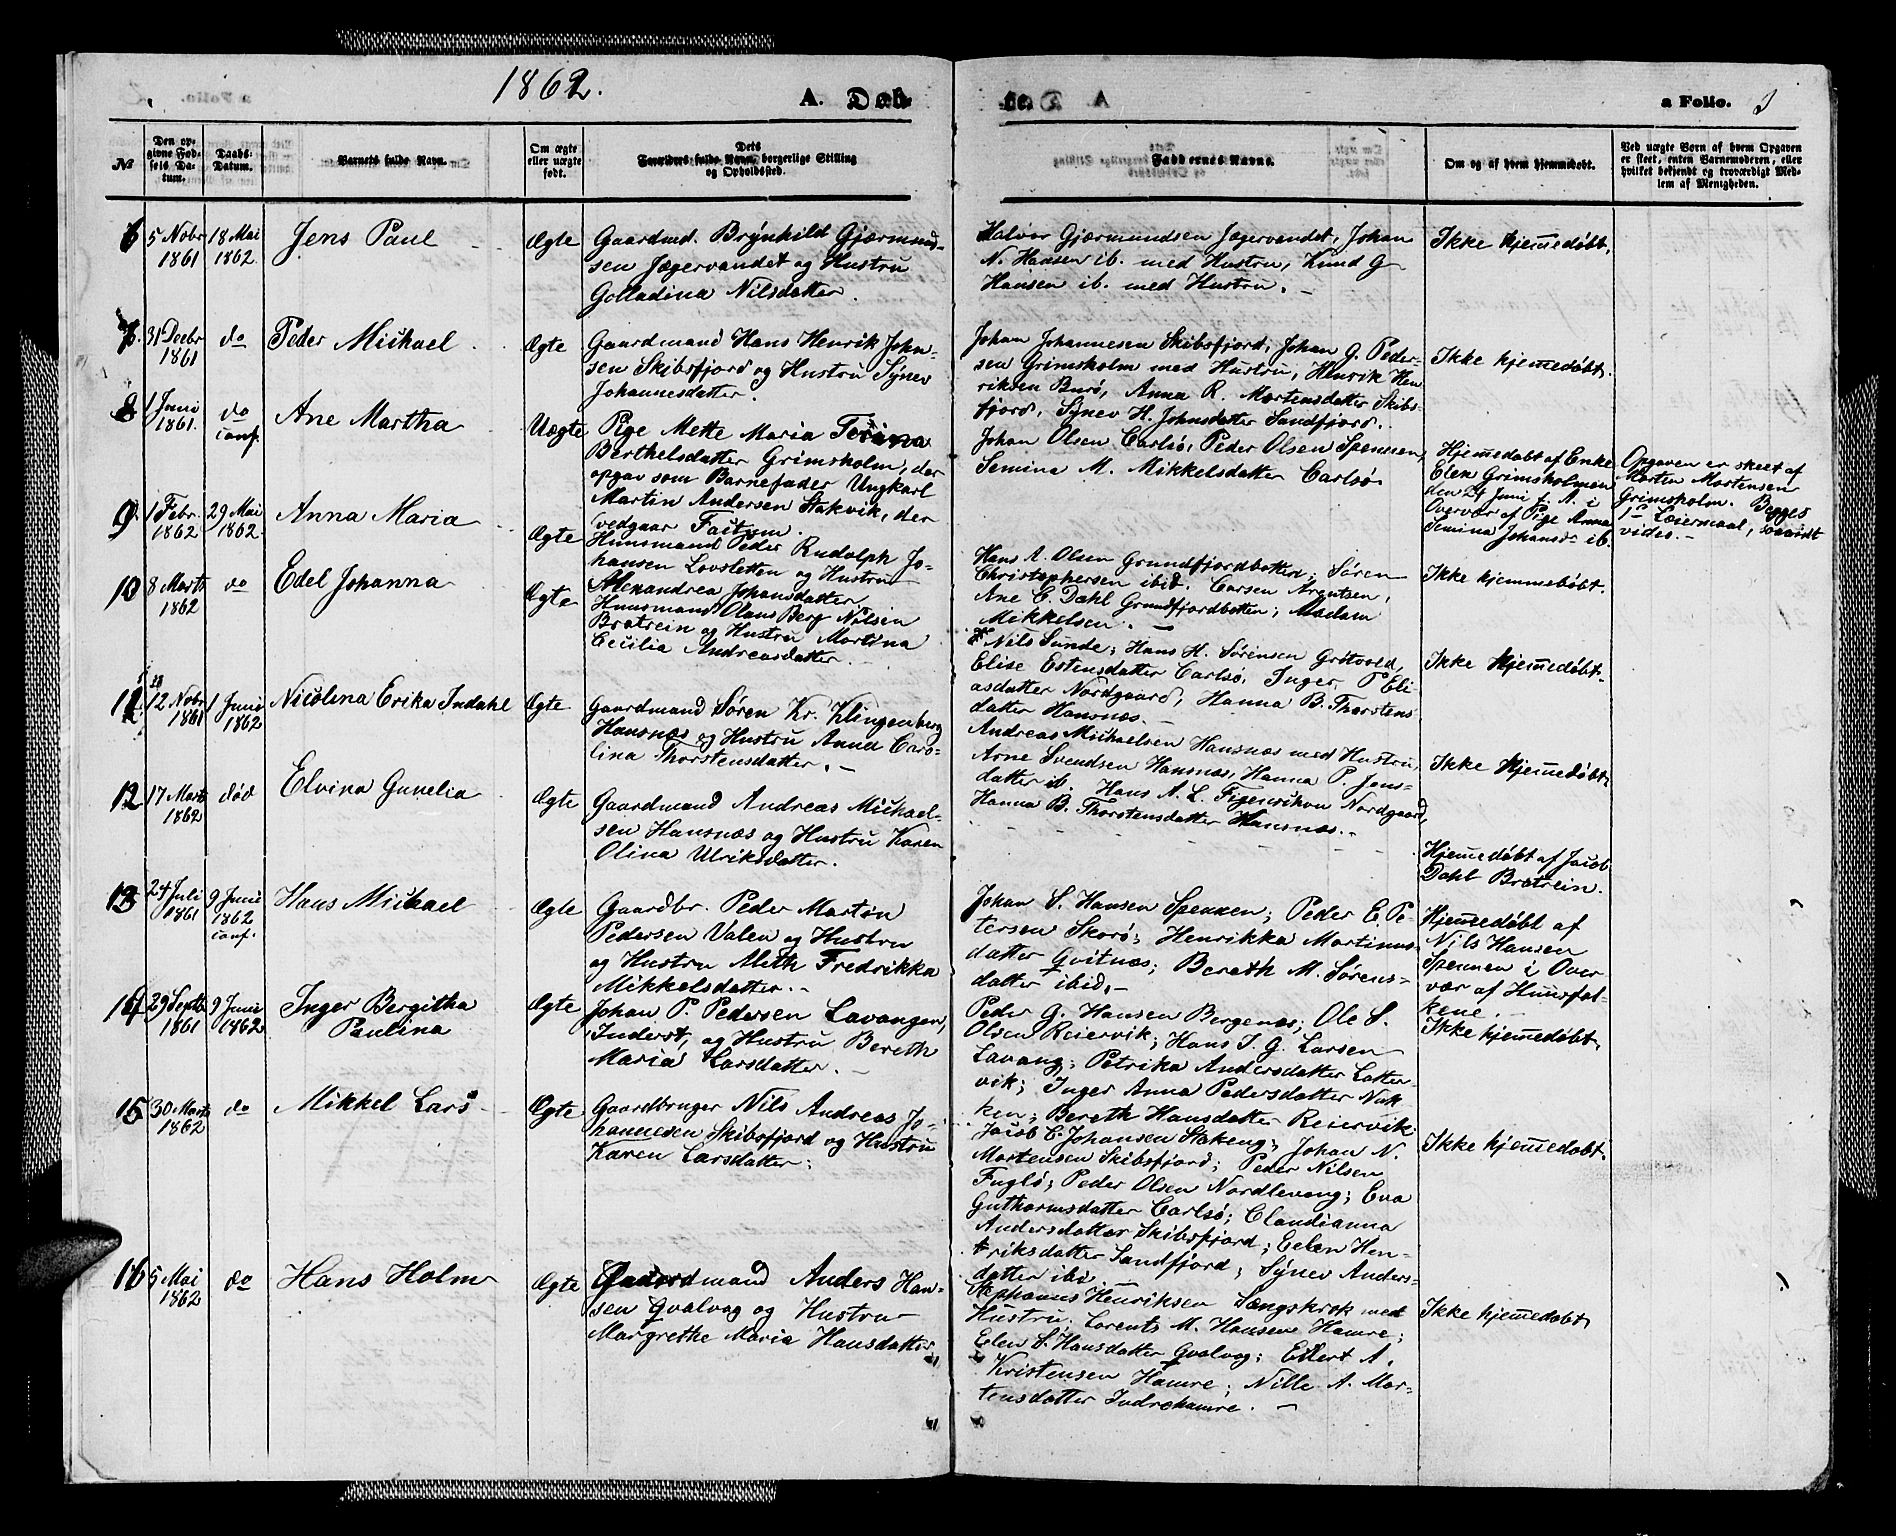 1862.
A. Døb
a Folio. 3
№
Den opgivne Fødsels Datum.
Daabs-Datum.
Barnets fulde Navn.
Om ægte eller uægte født.
Dets Forældres fulde Navn, borgerlige Stilling og Opholdssted.
Faddernes Navne.
Om og af hvem hjemmedøbt.
Ved uægte Børn af hvem Opgaven er skeet, enten Barnemoderen, eller hvilket bekjendt og troværdigt Medlem af Menigheden.
6
5 Nobr
1861
18 Mai
1862
Jens Paul
Ægte
Gaardmd. Brynhild Gjærmund-
sen Jægervandet og Hustru
Golladina Nilsdatter.
Halvor Gjærmundsen Jægervandet, Johan
N. Hansen ib. med Hustru, Knud G
Hansen ib. med Hustru.
Ikke hjemmedøbt.
7.
31 Decbr
1861
do
Peder Michael
Ægte
Gaardmand Hans Henrik John-
sen Skibsfjord og Hustru Synev
Johannesdatter.
Johan Johannesen Skibsfjord, Johan G. Peder-
sen Grimsholm med Hustru, Henrik Hen
riksen Burø, Anna R. Mortensdatter Skibs-
fjord, Synev H. Johnsdatter Sandfjord.
Ikke hjemmedøbt.
8
1 Juni
1861.
do
conf.
Ane Martha
Uægte
Pige Mette Maria
Berthelsdatter Grimsholm, der
opgav som Barnefader Ungkarl
Martin Andersen Stakvik, der
vedgaar Factum.
Johan Olsen Carlsø, Peder Olsen Spennen,
Semina M. Mikkelsdatter Carlsø
Hjemmedøbt af Enke
Elen Grimsholmen
den 24 Juni f. A. i
Overvær af Pige Anna
Semina Johansd. ib.
Opgaven er skeet af
Morten Mortensen
Grimsholm. Begges
1ste Leiermaal, saavidt
vides.
9
1 Febr.
1862
29 Mai
1862
Anna Maria
Ægte
Huusmand Peder Rudolph Jo-
hansen Lovsletten og Hustru
Alexandrea Johansdatter
Hans A. Olsen Grundfjordbotten, Søren
Christophersen ibid. Carsen Arentsen,
Ane C. Dahl Grundfjordbotten, Madam
Mikkelsen.
Ikke hjemmedøbt.
10
8 Marts
1862
do
Edel Johanna
Ægte
Huusmand Olaus Berg Nilsen
Bratrein og Hustru Martina
Cecilia Andreasdatter.
Nils Sunde; Hans H. Sørensen Grøtved,
Elise Estensdatter Carlsø, Inger P. Eli-
asdatter Nordgaard, Hanna B. Thorstens
datter Hansnæs.
Ikke hjemmedøbt.
11
12 Nobr
1861
1 Juni
1862
Nicolina Erika Indahl
Ægte
Gaardmand Søren Kr. Klingenberg
Hansnæs og Hustru Anna Caro-
lina Thorstensdatter.
Andreas Michaelsen Hansnæs med Hustru,
Arne Svendsen Hansnæs, Hanna P. Jens-
datter ib. Hans A. L. Nordgaard,
Hanna B. Thorstensdatter Hansnæs.
Ikke hjemmedøbt
12
17 Marts
1862
død
Elvina Gunelia
Ægte
Gaardmand Andreas Michael-
sen Hansnæs og Hustru Karen
Olina Ulriksdatter.
Hjemmedøbt af Jacob
Dahl Bratrein.
13
24 Juli
1861
9 Juni
1862
conf.
Hans Michael
Ægte
Gaardbr. Peder Martin
Pedersen Valen og Hustru
og Hustru Meth Fredrikka
Mikkelsdatter.
Johan S. Hansen Spennen; Peder E. Pe-
tersen Skorø; Henrikka Martinus-
datter Qvitnæs; Bereth M. Sørens-
datter ibid.
Hjemmedøbt af
Nils Hansen
Spennen i Over-
vær af Huusfol-
kene.
14
29 Septb
1861
9 Juni
1862
Inger Bergitha
Paulina
Ægte
Johan P. Pedersen Lavangen,
Inderst, og Hustru Bereth
Maria Larsdatter.
Peder G. Hansen Bergenæs; Ole S.
Olsen Reiervik; Hans J. G. Larsen
Lavang; Petrika Andersdatter Latter-
vik; Inger Anna Pedersdatter Nak
ken; Bereth Hansdatter Reiervik
Ikke hjemmedøbt.
15
30 Marts
1862
do
Mikkel Lars
Ægte
Gaardbruger Nils Andreas Jo-
hannesen Skibsfjord og Hustru
Karen Larsdatter;
Jacob E. Johansen Stakeng; Johan N.
Mortensen Skibsfjord; Peder Nilsen
Fuglø; Peder Olsen Nordlevang; Eva
Guthormsdatter Carlsø; Claudianna
Andersdatter Skibsfjord; Eelen Hen-
riksdatter Sandfjord; Synev Anders-
datter ibi.
Ikke hjemmedøbt.
16
5 Mai
1862
do
Hans Holm
Ægte
Gaardmand Anders Han-
sen Qvalvaag og Hustru
Margrethe Maria Hansdatter
Stephanus Henriksen Sængskrok med
Hustru; Lorents M. Hansen Hamre;
Eelen S. Hansdatter Qvalvaag; Eilert A.
Kristensen Hamre; Nille A. Mor-
tensdatter Indrehamre.
Ikke hjemmedøbt